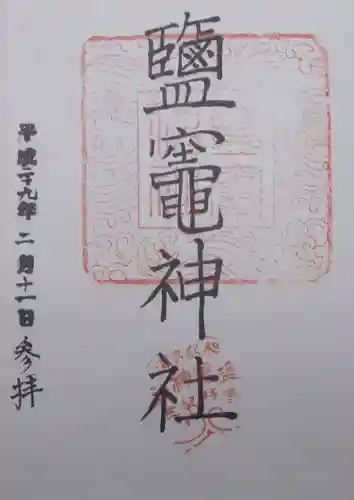 鹽竈神社
平成二十九年二月十一日参拝